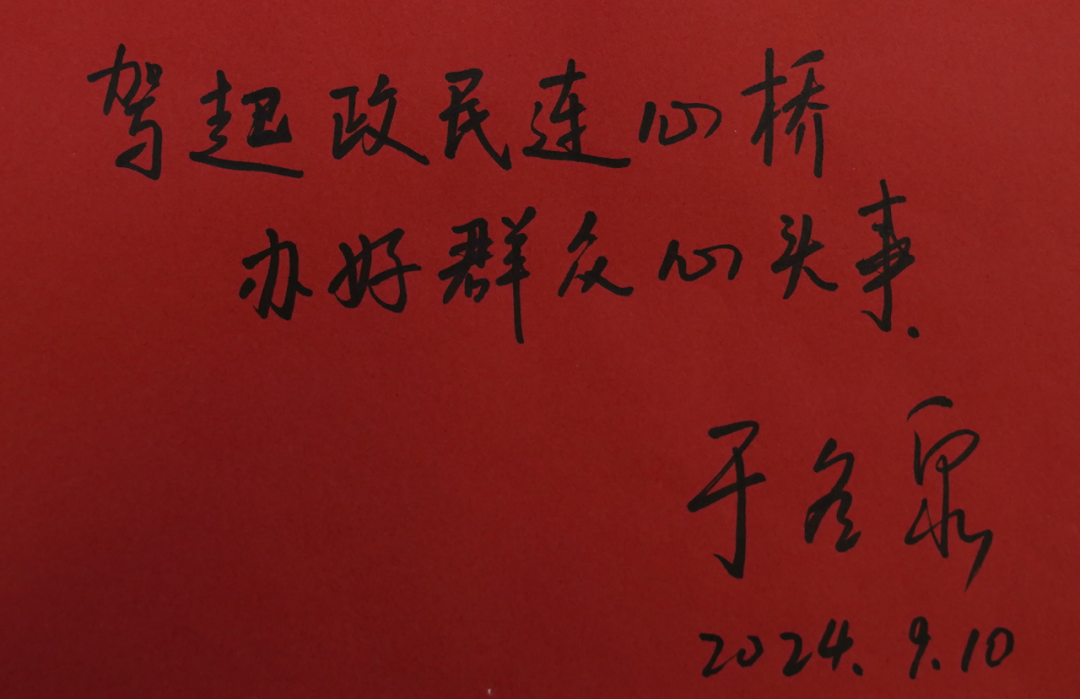 驾起政民连心桥
办好群众心头事.
于冬泉
2024.9.10